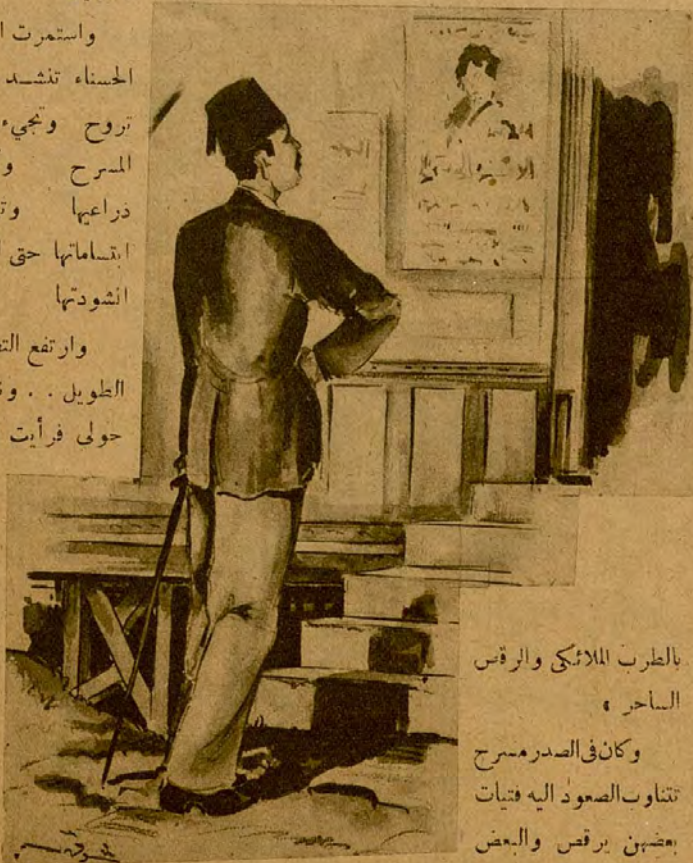 واستمرت ا
الحسناء تنشد
تروح وتجيء
المسرح و
ذراعيها وت
ابتساماتها حتى ا
انشودتها
وارتفع التص
الطويل . . و
حولى فرأيت
بالطرب الملائكى والرقص
الساحر »
وكان فى الصدر مسرح
تتناوب الصعود اليه فتيات
بعضهن يرقص والبعض